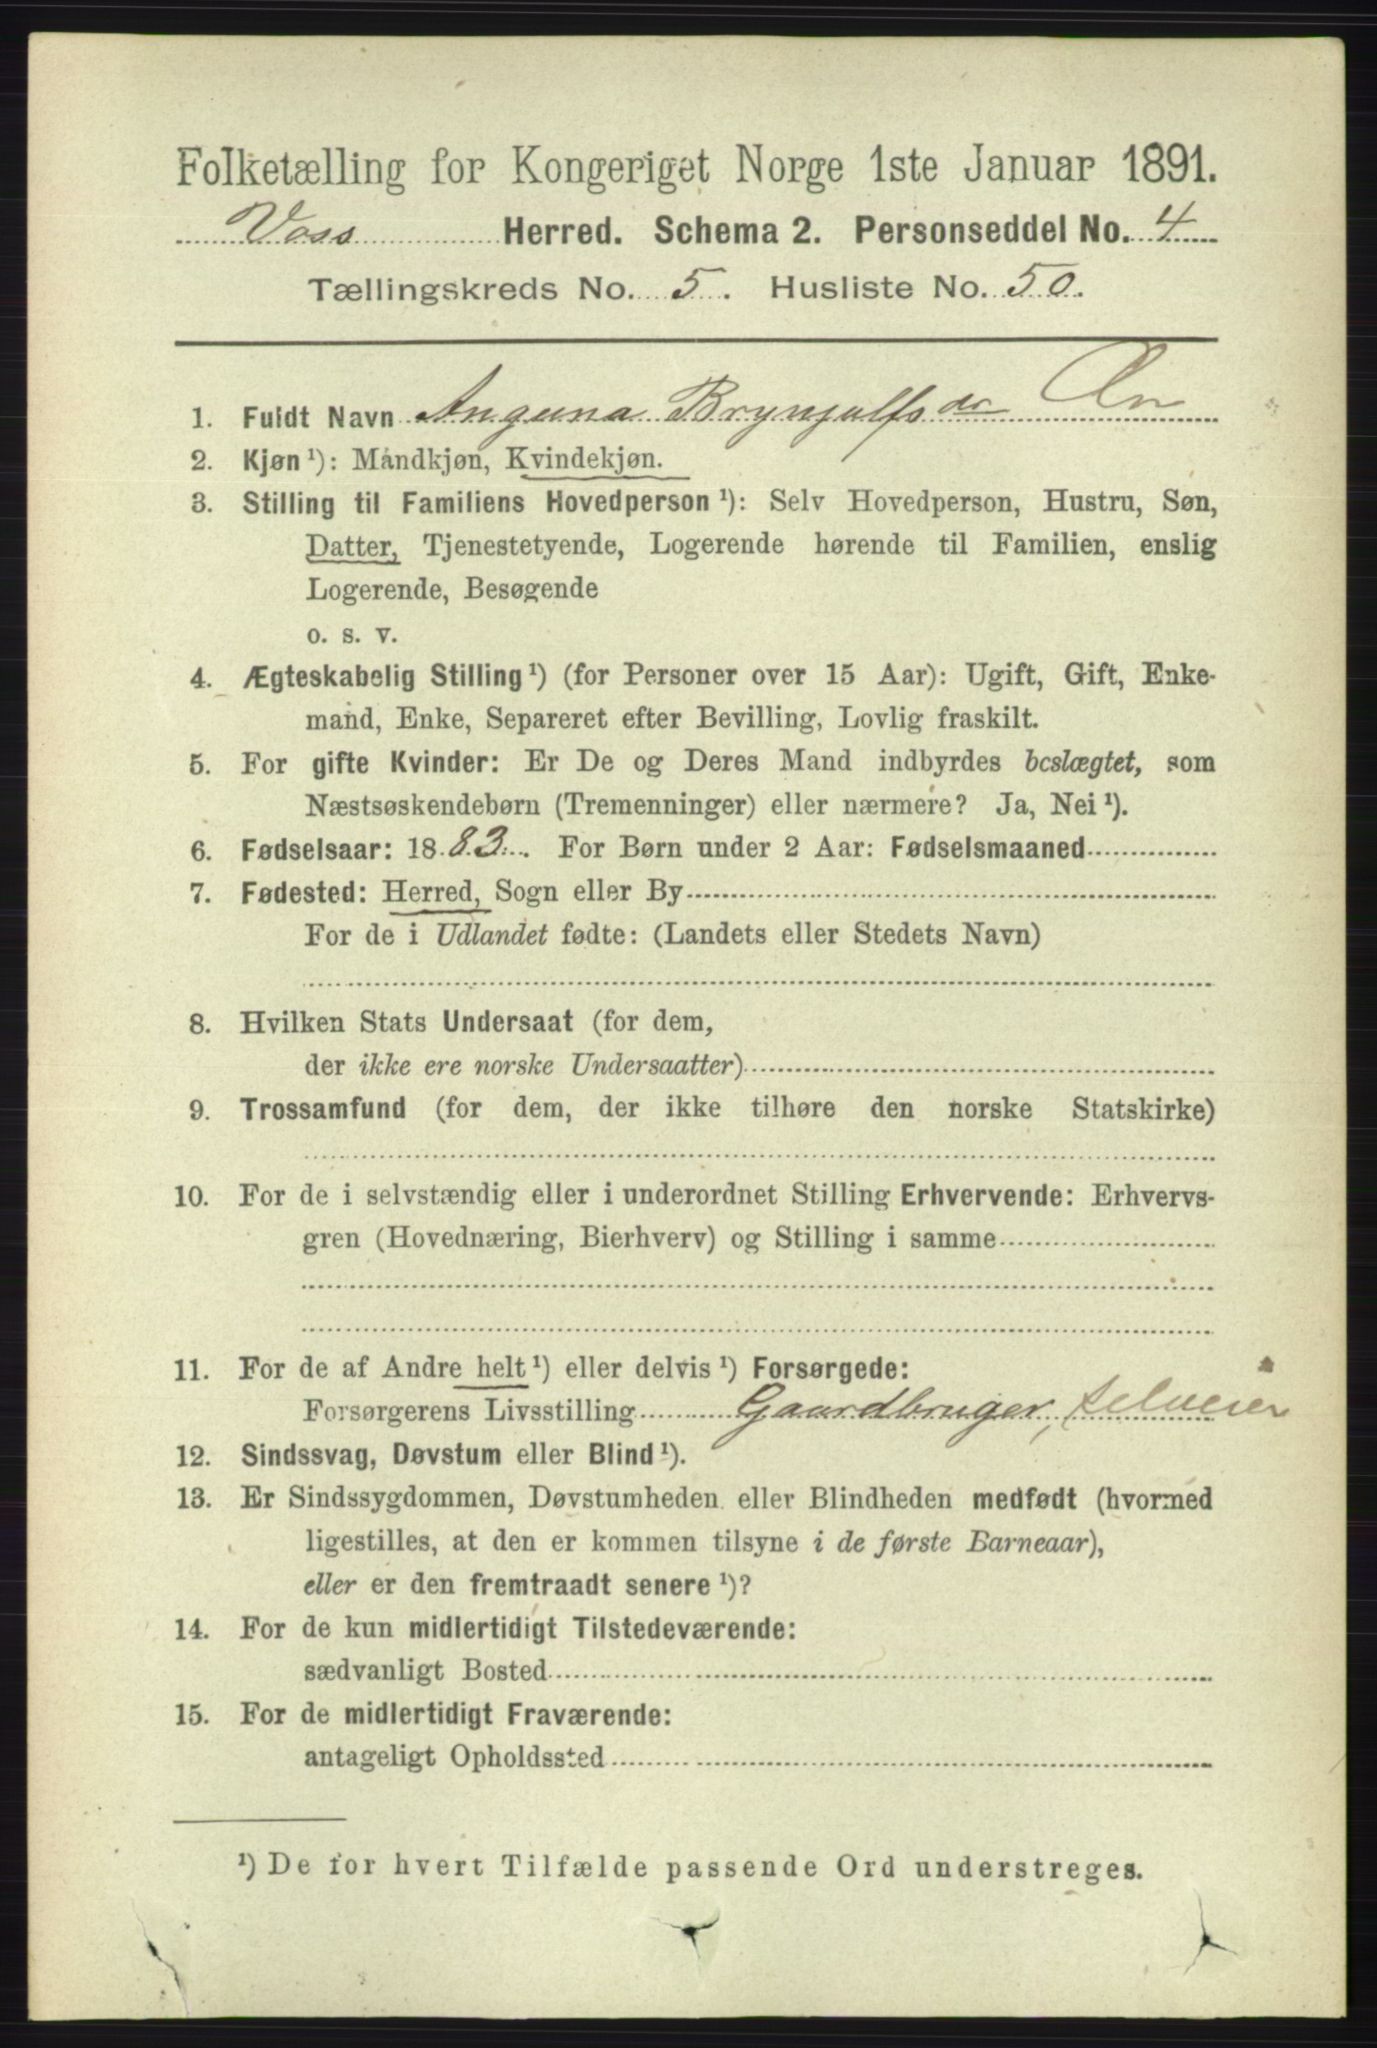 Folketælling for Kongeriget Norge 1ste Januar 1891.
Voss Herred. Schema 2. Personseddel No. 4
Tællingskreds No. 5. Husliste No. 50.
1. Fuldt Navn Anguna Brynjulfsdr
2. Kjøn ¹): Måndkjøn, Kvindekjøn.
3. Stilling til Familiens Hovedperson ¹): Selv Hovedperson, Hustru, Søn,
Datter, Tjenestetyende, Logerende hørende til Familien, enslig
Logerende, Besøgende
o. s. v.
4. Ægteskabelig Stilling ¹) (for Personer over 15 Aar): Ugift, Gift, Enke-
mand, Enke, Separeret efter Bevilling, Lovlig fraskilt.
5. For gifte Kvinder: Er De og Deres Mand indbyrdes beslægtet, som
Næstsøskendebørn (Tremenninger) eller nærmere? Ja, Nei ¹).
6. Fødselsaar: 1883. For Børn under 2 Aar: Fødselsmaaned
7. Fødested: Herred, Sogn eller By
For de i Udlandet fødte: (Landets eller Stedets Navn)
8. Hvilken Stats Undersaat (for dem,
der ikke ere norske Undersaatter)
9. Trossamfund (for dem, der ikke tilhøre den norske Statskirke)
10. For de i selvstændig eller i underordnet Stilling Erhvervende: Erhvervs-
gren (Hovednæring, Bierhverv) og Stilling i samme
11. For de af Andre helt ¹) eller delvis ¹) Forsørgede:
Forsørgerens Livsstilling Gaardbruger, selveier
12. Sindssvag, Døvstum eller Blind ¹).
13. Er Sindssygdommen, Døvstumheden eller Blindheden medfødt (hvormed
ligestilles, at den er kommen tilsyne i de første Barneaar),
eller er den fremtraadt senere ¹)?
14. For de kun midlertidigt Tilstedeværende:
sædvanligt Bosted
15. For de midlertidigt Fraværende:
antageligt Opholdssted
¹) De for hvert Tilfælde passende Ord understreges.